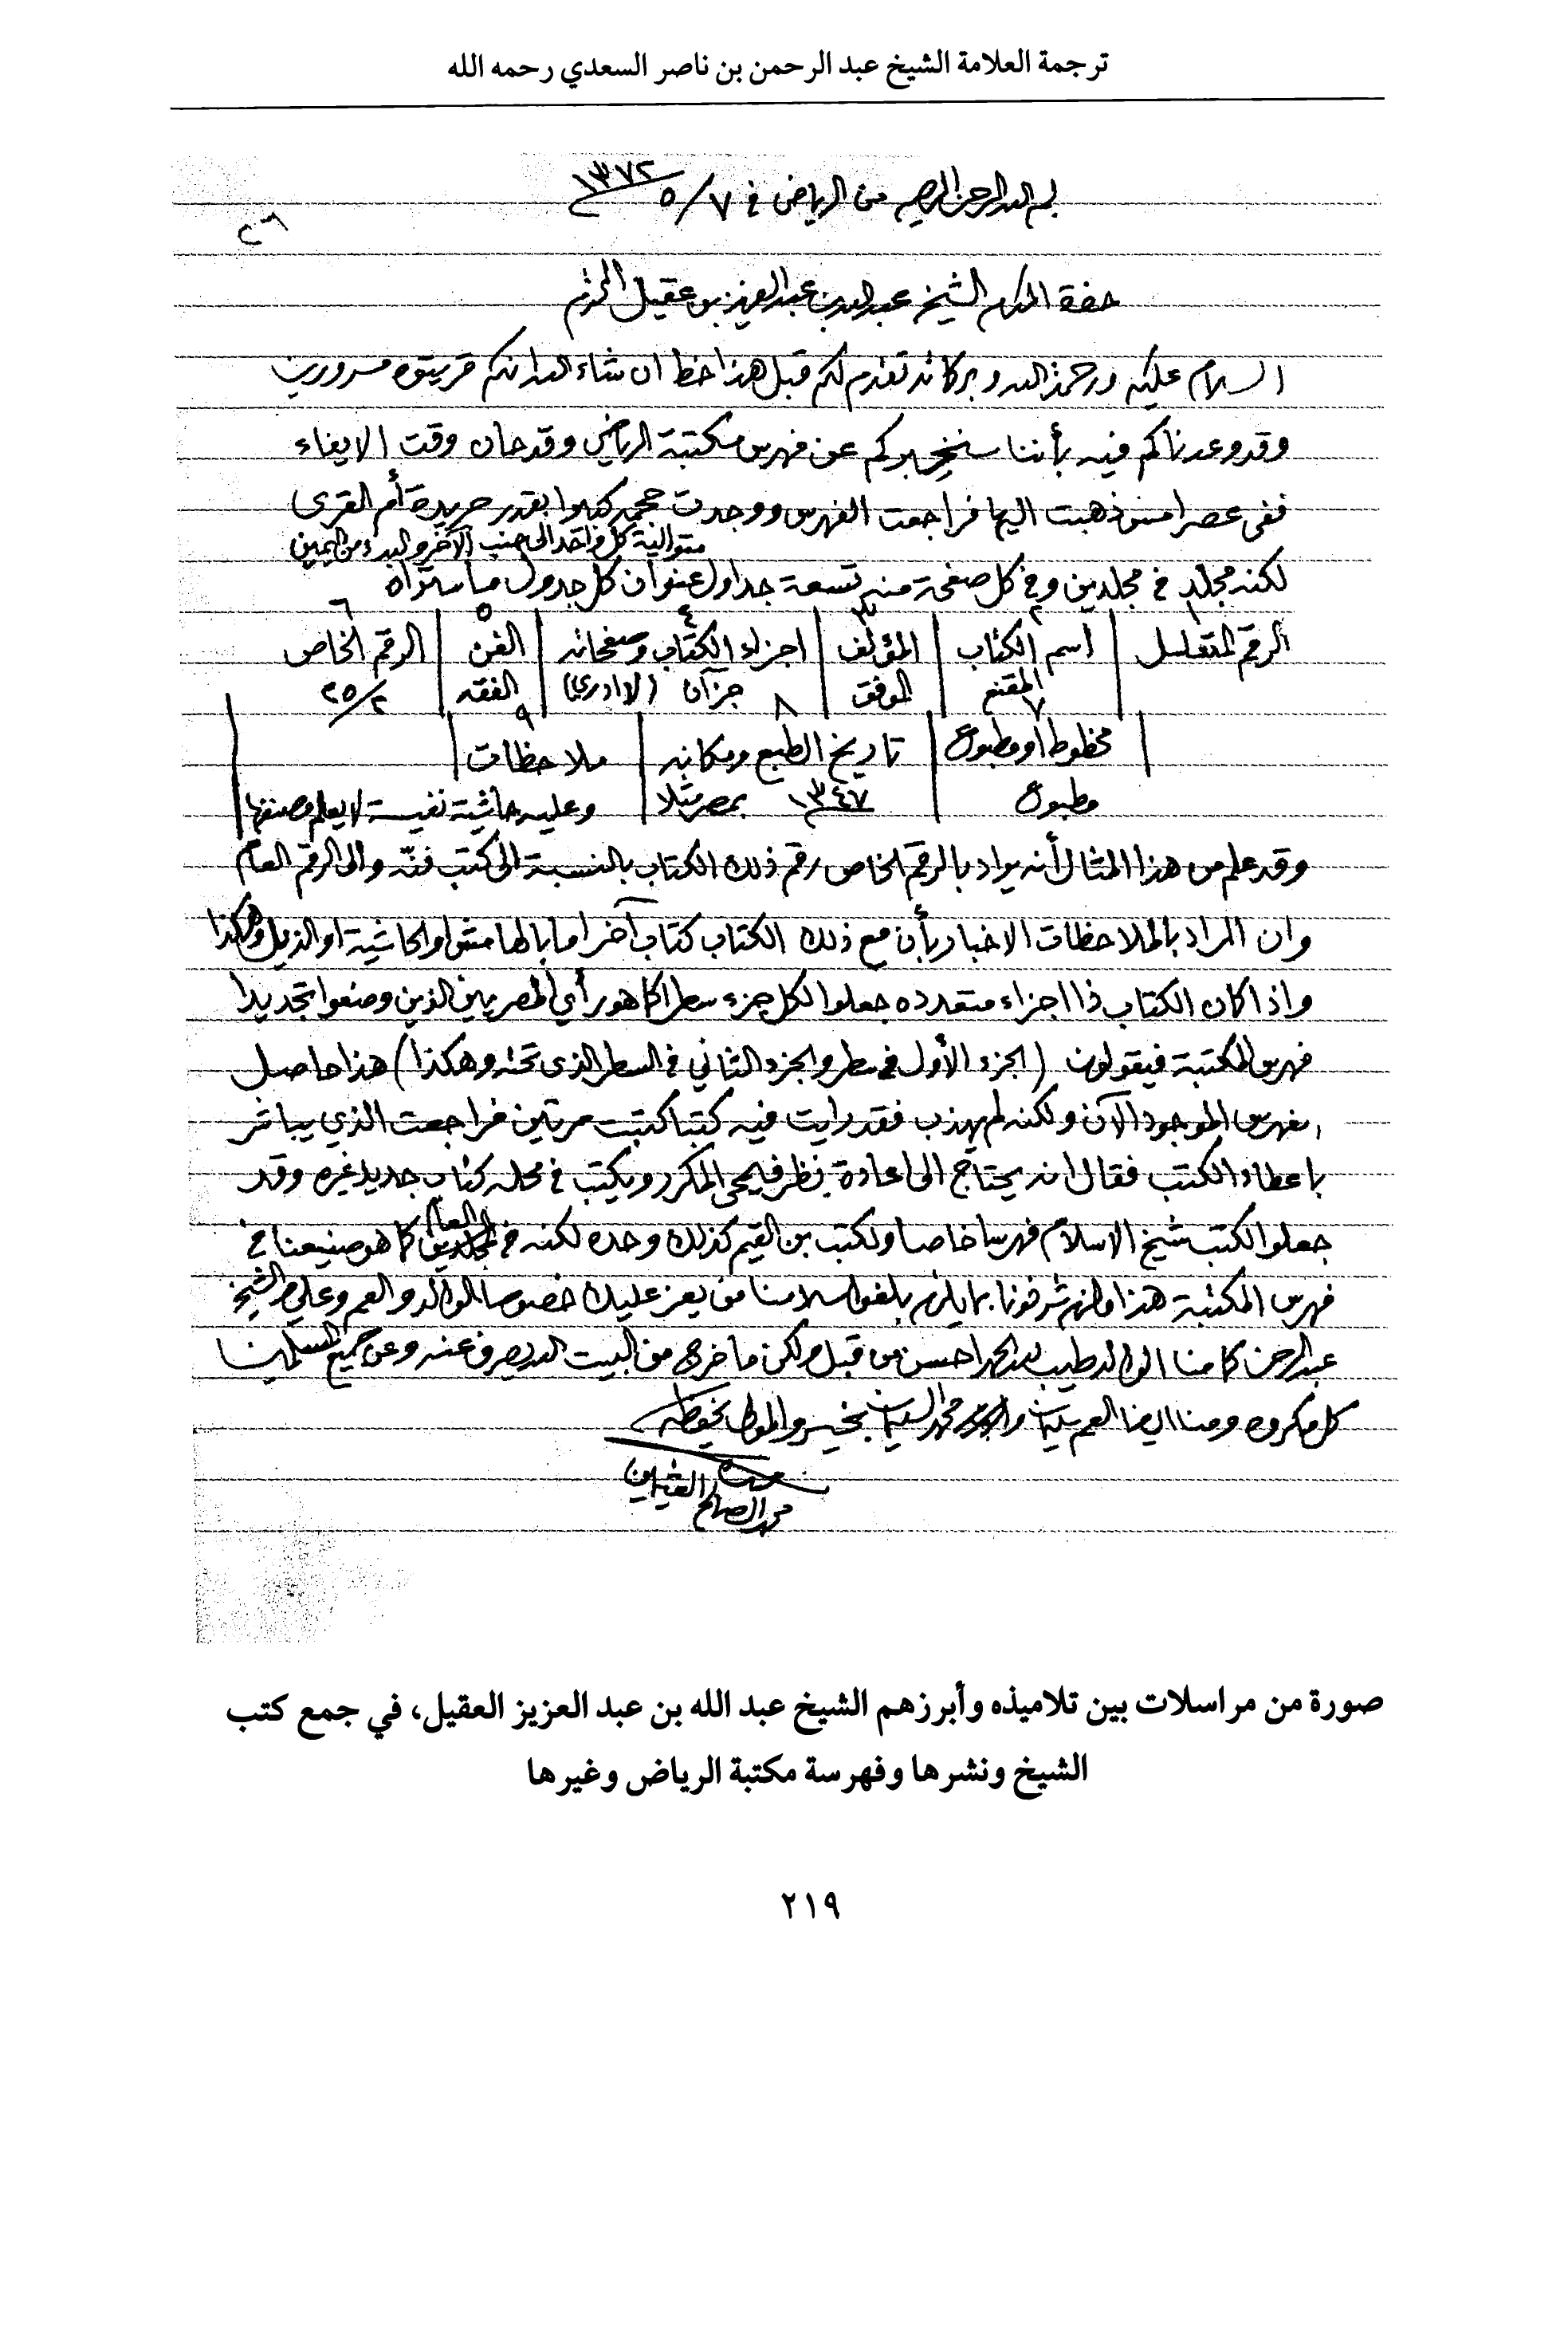 ترجمة العلامة الشيخ عبد الرحمن بن ناصر السعدي رحمه الله
بسم الله الرحمن الرحيم من الرياض في ٧/٥ ١٣٧٢
حضرة المكرم الشيخ عبد الله بن عبد العزيز بن عقيل المحترم
السلام عليكم ورحمة الله وبركاته تقدم لكم قبل هذا خط ان شاء الله انكم قريتوه مسرورين
وقد وعدناكم فيه بأننا سنخبركم عن فهرس مكتبة الرياض وقد حان وقت الايفاء
ففي عصر امس ذهبت اليها فراجعت الفهرس ووجدت حجمه كبيرا بقدر جريدة أم القرى
متوالية كل واحد الى جنب الآخر والبداء من اليمين
لكنه مجلد في مجلدين وفي كل صفحة منه تسعة جداول عنوان كل جدول ما ستراه
١ ٢ ٣ ٤ ٥ ٦
الرقم المتسلسل | اسم الكتاب | المؤلف | اجزاء الكتاب وصفحاته | الفن | الرقم الخاص
المقنع | الموفق | جزآن (لا ادري) | الفقه | ٢٥/٢
٧ ٨ ٩
مخطوط او مطبوع | تاريخ الطبع ومكانه | ملاحظات
مطبوع | ١٣٤٧ بمصر مثلا | وعليه حاشية نفيسة لا يعلم مصنفها
وقد علم من هذا المثال أنه يراد بالرقم الخاص رقم ذلك الكتاب بالنسبة الى كتب فنّه والى الرقم العام
وان المراد بالملاحظات الاخبار بأن مع ذلك الكتاب كتاب آخر اما بالهامش او الحاشية او الذيل وهكذا
واذا كان الكتاب ذا اجزاء متعدده جعلوا لكل جزء سطرا كما هو رأي المصريين الذين وضعوا تجديدا
فهرس المكتبة فيقولون (الجزء الأول في سطر والجزء الثاني في السطر الذي تحته وهكذا) هذا حاصل
الفهرس الموجود الآن ولكنه لم يهذب فقد رايت فيه كتبا كتبت مرتين فراجعت الذي يباشر
باعطاء الكتب فقال انه يحتاج الى اعادة نظر فيمحى المكرر ويكتب في محله كتاب جديد غيره وقد
جعلوا لكتب شيخ الاسلام فهرسا خاصا ولكتب بن القيم كذلك وحده لكنه في العام كما هو صنيعنا في
فهرس المكتبة هذا ما لزم شرفونا بما يلزم بلغوا سلامنا من يعز عليك خصوصا الوالد والعم وعلي والشيخ
عبد الرحمن كما منا الوالد طيب لله الحمد احسن من قبل ولكن ما خرج من البيت الله يصرف عنه وعن جميع المسلمين
كل مكروه ومنا ايضا العم محمد بخير والمولى يحفظكم
محبك
محمد الصالح العثيمين
صورة من مراسلات بين تلاميذه وأبرزهم الشيخ عبد الله بن عبد العزيز العقيل، في جمع كتب
الشيخ ونشرها وفهرسة مكتبة الرياض وغيرها
٢١٩